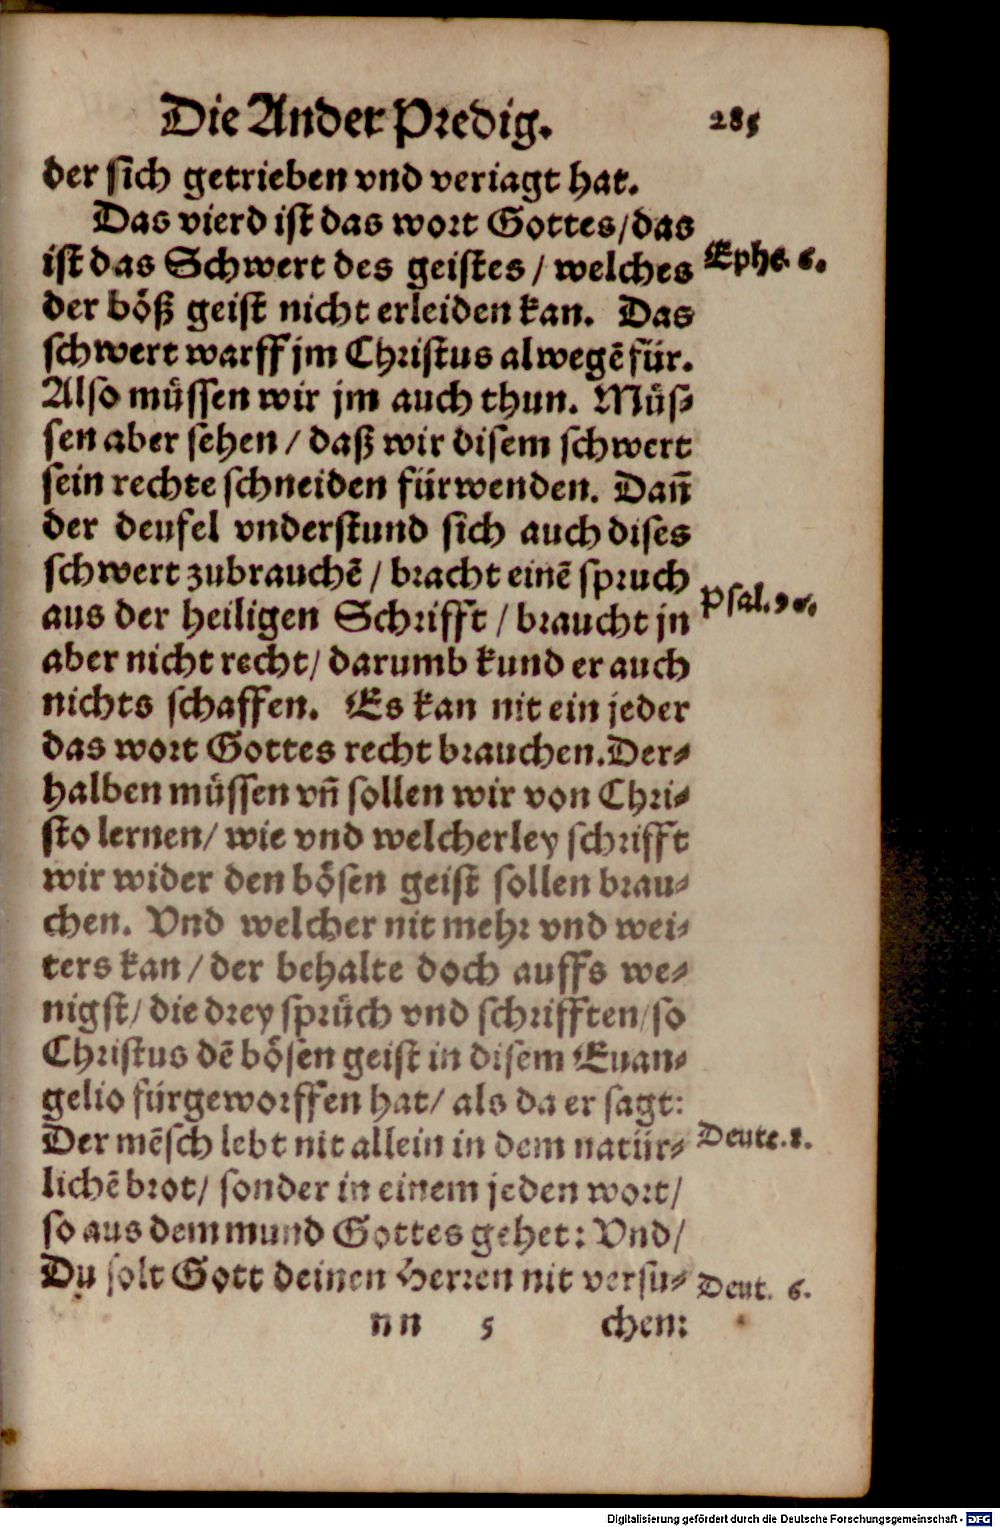 Die Ander Predig. 285
der sich getrieben vnd veriagt hat.
Das vierd ist das wort Gottes/das
ist das Schwert des geistes / welches Ephe. 6.
der böß geist nicht erleiden kan. Das
schwert warff jm Christus alwegē für.
Also müssen wir jm auch thun. Müs⸗
sen aber sehen / daß wir disem schwert
sein rechte schneiden fürwenden. Dañ
der deufel vnderstund sich auch dises
schwert zubrauchē / bracht einē spruch
aus der heiligen Schrifft / braucht jn Psal. 90.
aber nicht recht/ darumb kund er auch
nichts schaffen. Es kan nit ein jeder
das wort Gottes recht brauchen. Der⸗
halben müssen vñ sollen wir von Chri⸗
sto lernen/ wie vnd welcherley schrifft
wir wider den bösen geist sollen brau⸗
chen. Vnd welcher nit mehr vnd wei⸗
ters kan / der behalte doch auffs we⸗
nigst/ die drey sprüch vnd schrifften/so
Christus dē bösen geist in disem Euan⸗
gelio fürgeworffen hat/ als da er sagt:
Der mēsch lebt nit allein in dem natür⸗ Deute. 8.
lichē brot/ sonder in einem jeden wort/
so aus dem mund Gottes gehet: Vnd/
Du solt Gott deinen Herren nit versu⸗ Deut. 6.
nn 5 chen:
Digitalisierung gefördert durch die Deutsche Forschungsgemeinschaft - DFG